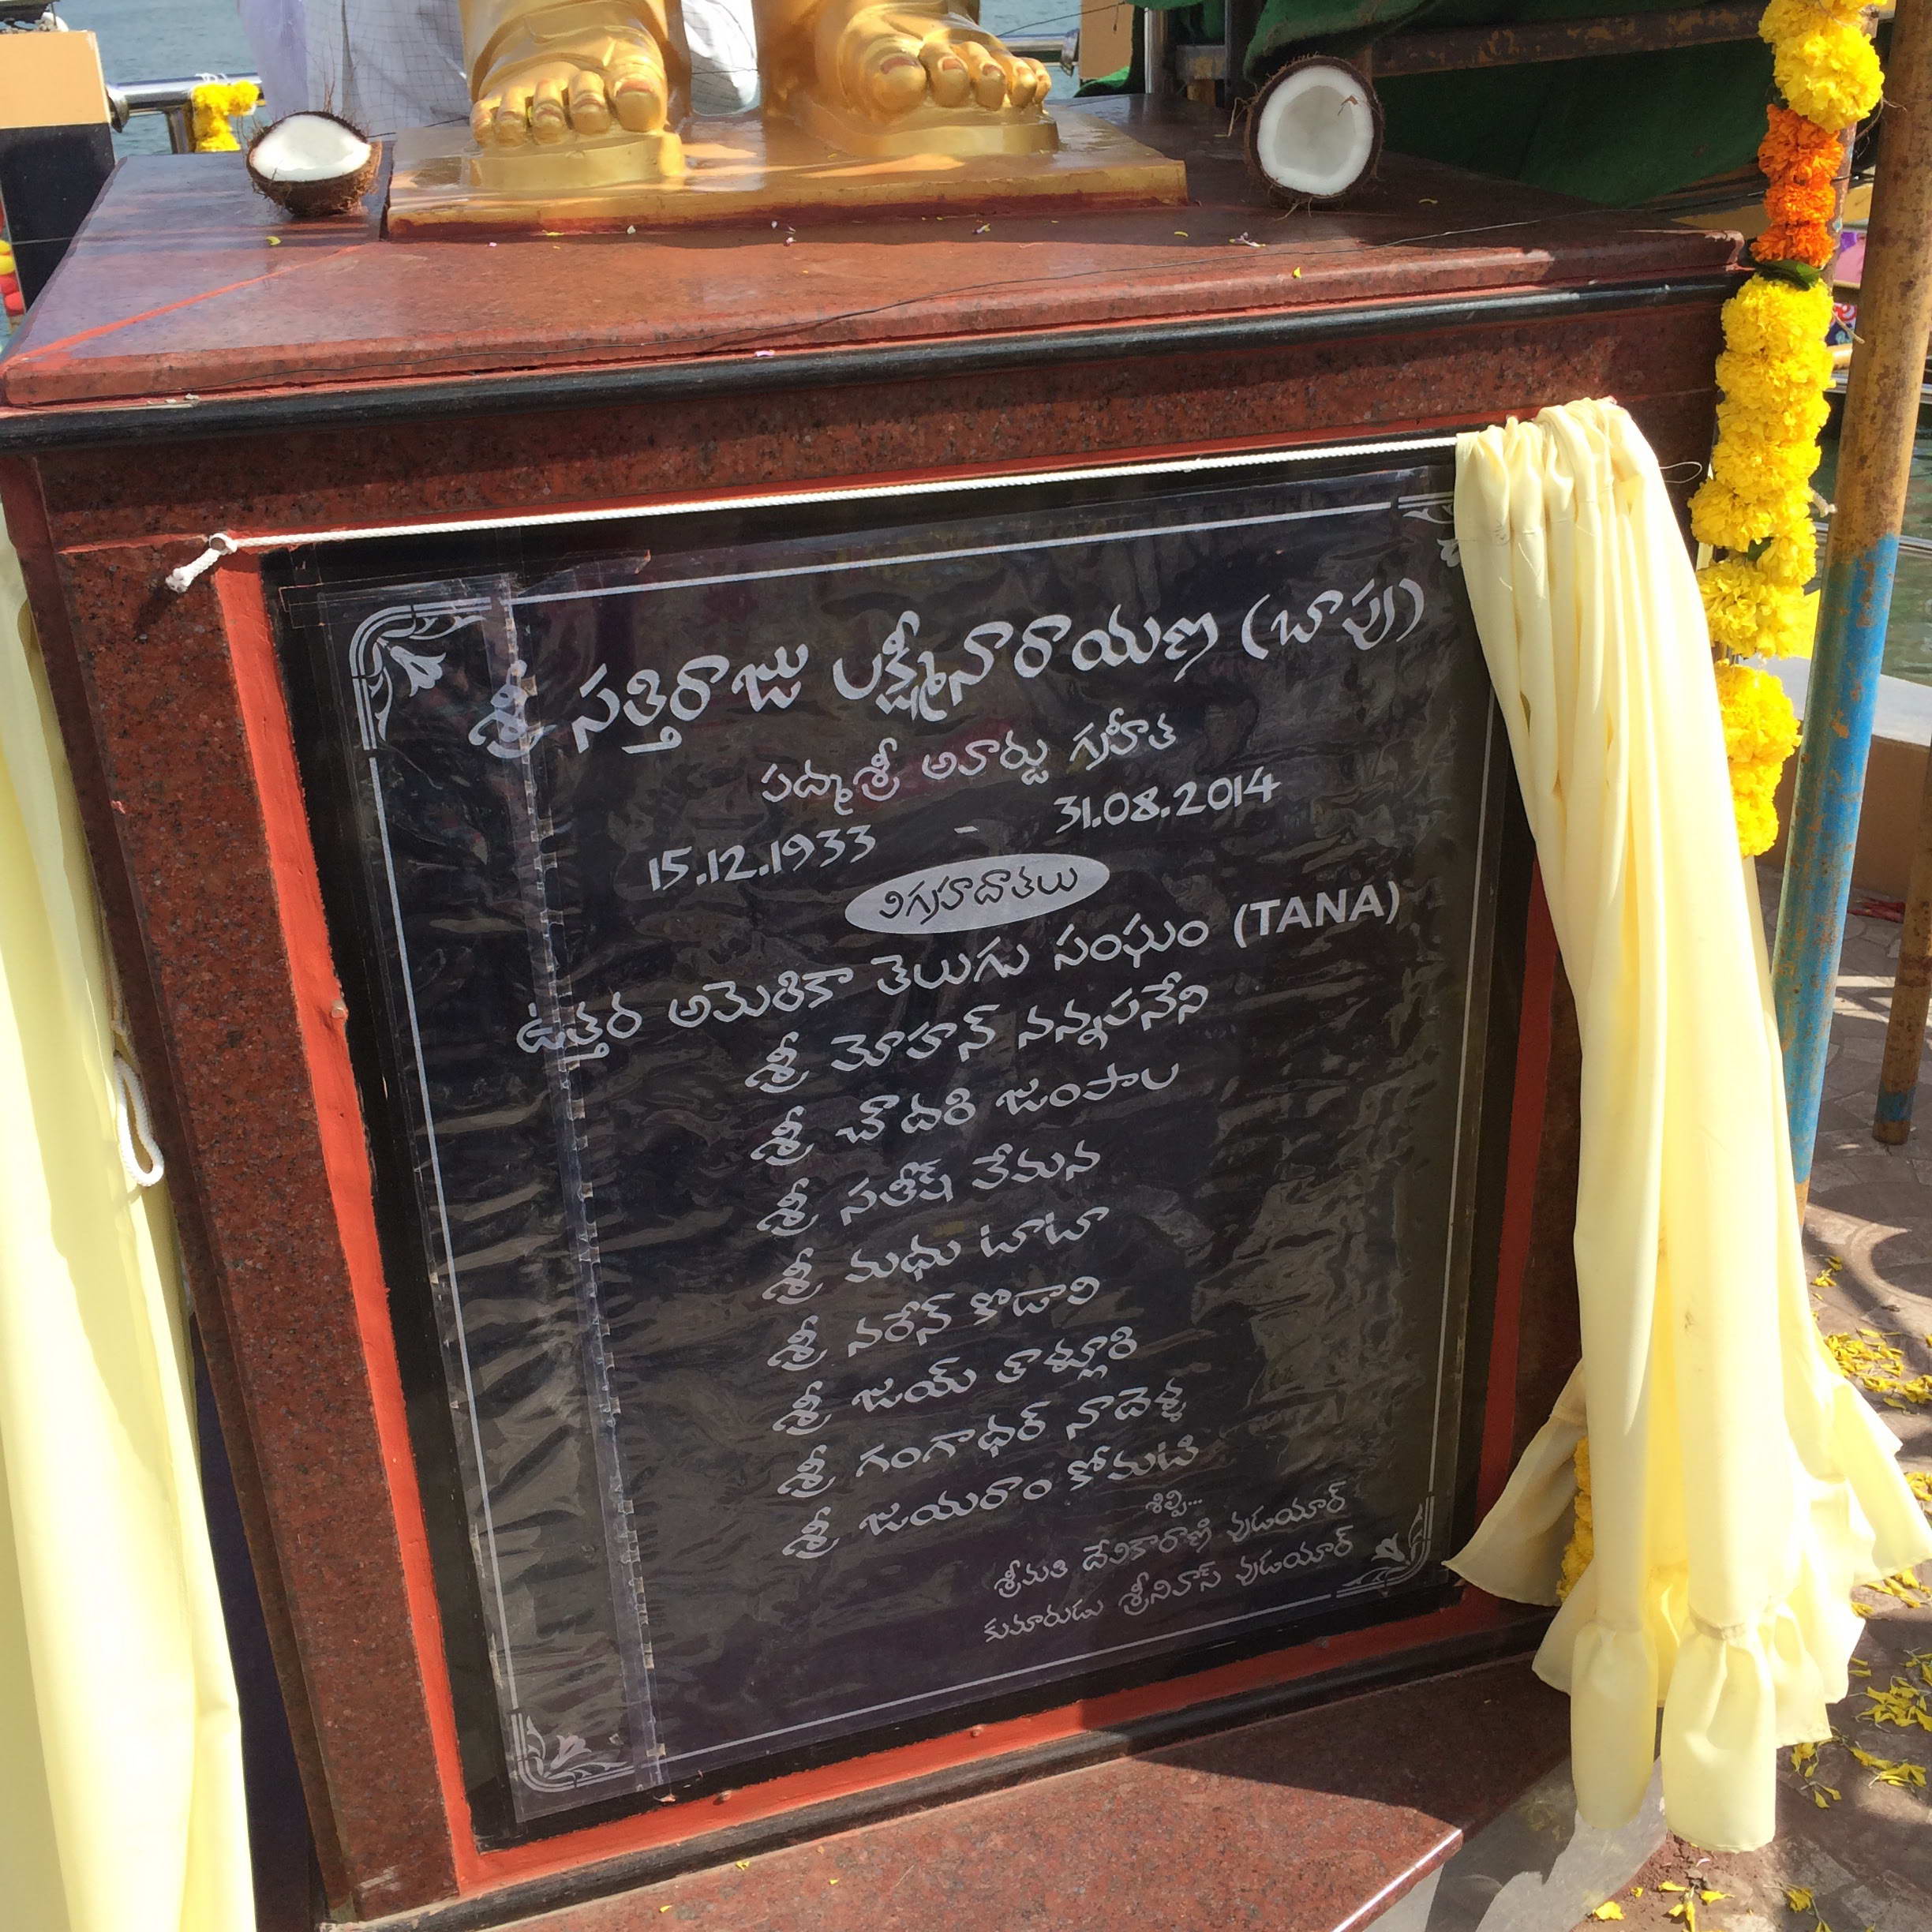 శ్రీ సత్తిరాజు లక్ష్మీనారాయణ (బాపు)
పద్మశ్రీ అవార్డు గ్రహీత
15.12.1933 - 31.08.2014
విగ్రహదాతలు
ఉత్తర అమెరికా తెలుగు సంఘం (TANA)
శ్రీ మోహన్ నన్నపనేని
శ్రీ చౌదరి జంపాల
శ్రీ సతీష్ వేమన
శ్రీ మధు టాటా
శ్రీ నరేన్ కొడాలి
శ్రీ జయ్ తాళ్లూరి
శ్రీ గంగాధర్ నాదెళ్ళ
శ్రీ జయరాం కోమటి
శిల్పి...
శ్రీమతి దేవికారాణి వుడయార్
కుమారుడు శ్రీనివాస్ వుడయార్